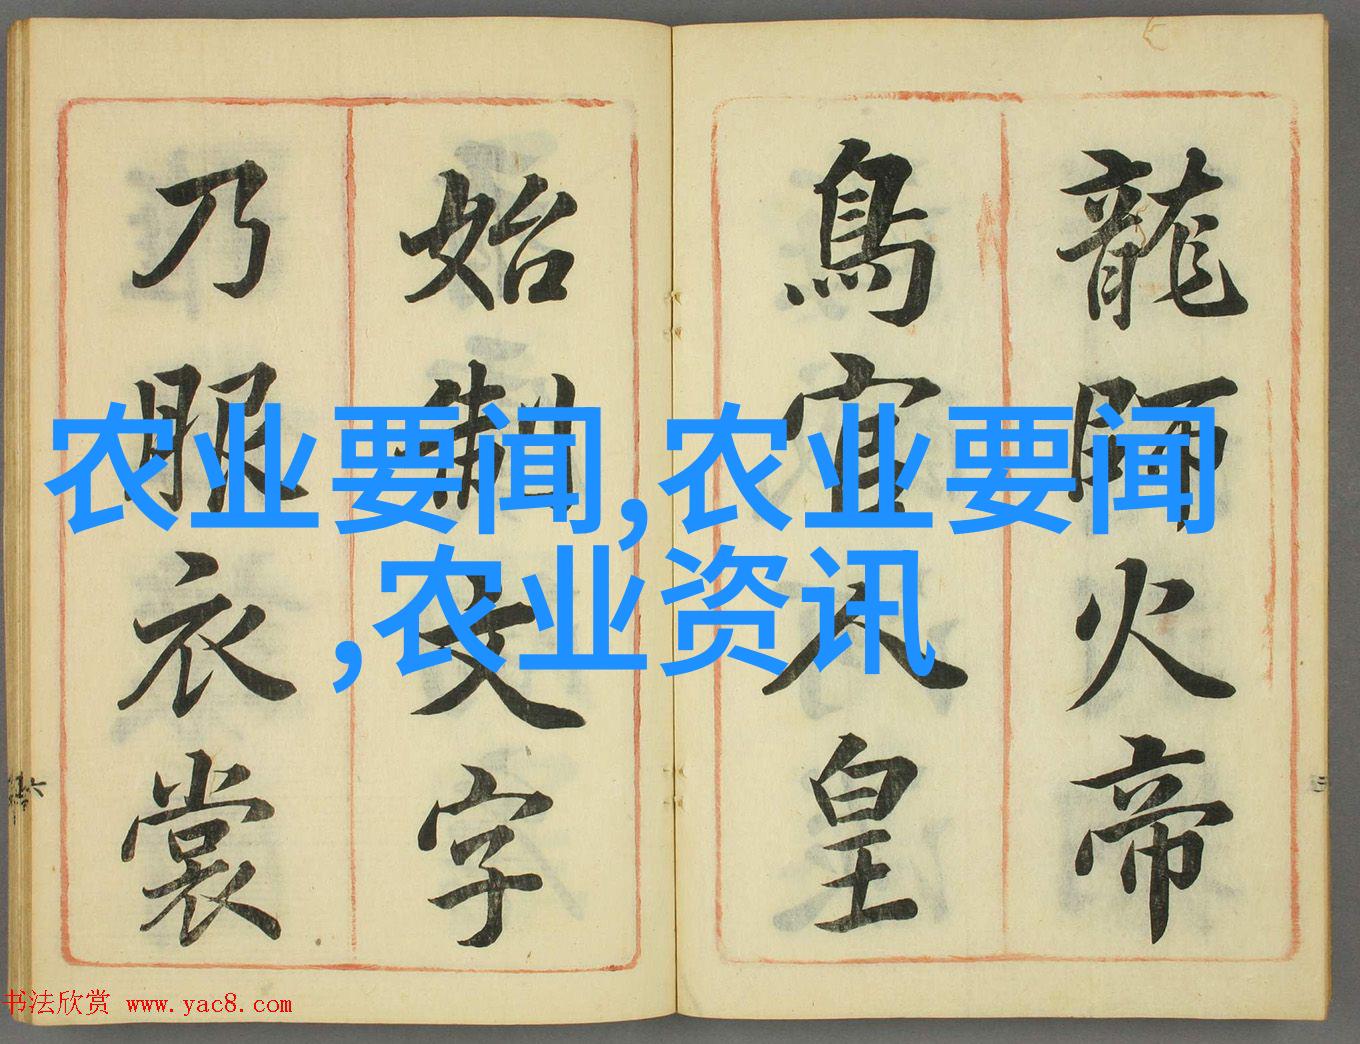 龍師火帝
鳥官人皇
始制文字
乃服衣裳
农业要闻,农业要闻
,农业资讯
书法欣赏 www.yac8.com